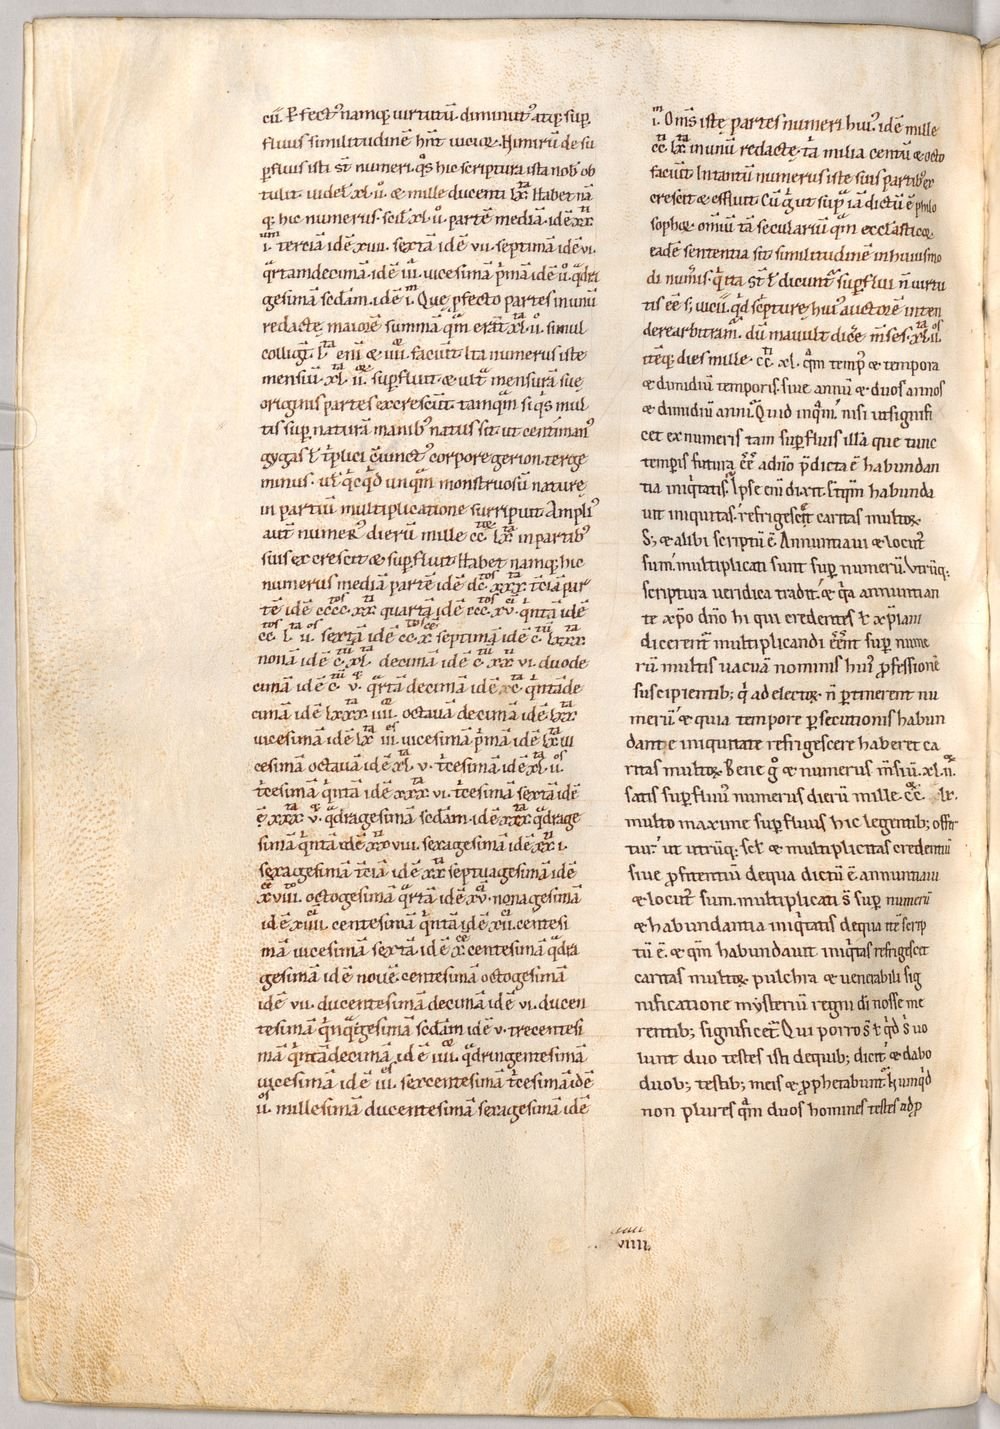 cū. P̄fect᷒ namq; uirtutū. diminut᷒ atq; sup̱
fluus similitudinē hn̄t uicioꝝ. Nimirū de su
p̱fluis isti st̄ numeri. q̄s hic scriptura ista nob᷒ ob
tulit. uidel&. xl. ii. & mille ducenti lx. Habet nā
q; hic numerus. scil&. xl. ii. partē mediā. idē xx.
i. terciā idē xiiii. sextā idē vii. septimā idē vi.
q̄rtamdecimā. idē iii. uicesimā p̄mā idē ii. q̄dra
gesimā scdam. idē i. Que p̱fecto partes inunū
redacte. maiorē summā qm̄ erāt xl. ii. simul
colligūt. l. eni & iiii. faciūt. Ita numerus iste
mensiū. xl. ii. sup̱fluit & ultra mensurā sue
originis partes excrescūt. tamqm̄ siq̄s mul
tis sup̱ naturā manib᷒ natus sit. ut centiman᷒
gygas ł t̄plici cūinct᷒ corpore gerion. terge
minus. ul̄ q̄cq̄d unqm̄ monstruosū nature
in partiū multiplicatione surripuit. Ampli᷒
aut̄ numer᷒ dierū mille cc. lx. in partib᷒
suis excrescit & sup̱fluit. Habet namq; hic
numerus mediā partē idē dc. xxx. t̄ciā par
tē idē cccc. xx. quartā idē ccc. xv. q̄ntā idē
cc. l. ii. sextā idē cc. x. septimā idē c. lxxx.
nonā idē c. xl. decimā idē c. xx vi. duode
cimā idē c. v. q̄rtā decimā idē xc. q̄ntāde
cimā idē lxxx. iiii. octauā decimā idē lxx.
uicesimā idē lx iii. uicesimā p̄mā idē lx. ui
cesimā octauā idē xl. v. t̄cesimā idē xl. ii.
t̄cesimā q̄ntā idē xxx. vi. t̄cesimā sextā idē
ē xxx. v. q̄dragesimā scdam. idē xxx. q̄drage
simā q̄ntā idē xx viii. sexagesimā idē xx i.
sexagesimā t̄ciā idē xx. septuagesimā idē
x viii. octogesimā q̄rtā idē xv. nonagesimā
idē xiiii. centesimā q̄ntā idē xii. centesi
mā uicesimā sextā idē x. centesimā q̄dra
gesimā idē nouē. centesimā octogesimā
idē vii. ducentesimā decimā idē vi. ducen
tesimā q̄nqgesimā scdam idē v. trecentesi
mā q̄ntādecimā idē iiii. q̄dringentesimā
uicesimā idē iii. sexcentesimā t̄cesimā idē
ii. millesimā ducentesimā sexagesimā idē
i. Om̄s iste partes numeri hui᷒. idē mille
cc. lx. inunū redacte. t̄a milia centū & octo
faciūt. Intantū numerus iste suis partib᷒ ex
crescit & effluit. Cū ḡ ut sup̱ iā dictū ē philo
sophoꝝ. omniū tā seculariū qm̄ ecclasticoꝝ.
eadē sententia sit similitudinē inhuiusmo
di num̄is. q̄ ita st̄ ł dicunt᷒ sup̱flui n̄ uirtu
tis eē s; uicii. q̄d sc̄pture hui᷒ auctorē inten
derearbitram᷒. dū mauult dic̄e m̄ses. xl. ii.
itēq; dies mille. cc. xl. qm̄ temp᷒ & tempora
& dimidiū temporis. siue annū & duos annos
& dimidiū anni. Quid inqm̄. nisi ut signifi
cet ex numeris tam sup̱fluis illā que tunc
temp̱is futura eēt adn̄o p̄dicta ē habundan
tia iniq̄tatis. Ipse eni dixit. Et qm̄ habunda
uit iniquitas. refrigescet caritas multoꝝ.
S; & alibi scriptū ē. Annuntiaui & locut᷒
sum. multiplicati sunt sup̱ numerū. Vtrūq;
scriptura ueridica tradit. & q̄a annuntian
te xp̄o dn̄o hi qui credentes ł xp̄iani
dicerent᷒ multiplicandi eēnt sup̱ nume
rū multis uacuā nominis hui᷒ p̱fessionē
suscipientib; q̄ ad electoꝝ. n̄ p̱tinerent nu
merū. & quia tempore p̱secutionis habun
dante iniquitate refrigescere haberet ca
ritas multoꝝ. Bene ḡ & numerus m̄siū. xl. ii.
satis sup̱fluus numerus dierū mille. cc. lx.
multo maxime sup̱fluus hic legentib; offer
tur. ut utrūq; scl& & multiplicitas credentiū
siue p̱fitentiū dequa dictū ē annuntiaui
& locut᷒ sum. multiplicati s̄ sup̱ numerū
& habundantia iniq̄tatis dequa ite scrip
tū ē. & qm̄ habundauit iniq̄tas refrigescet
caritas multoꝝ. pulchra & uenerabili sig
nificatione mysteriū regni di nosse me
rentib; significet᷒. Qui porro s̄ ł q̄d s̄ uo
lunt duo testes isti dequib; dicit. & dabo
duob; testib; meis & p̱phetabunt. Numq̄d
non plures qm̄ duos homines testes adp̱
viiii.